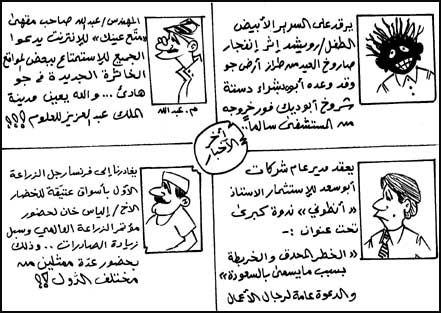 يرقد على السرير الأبيض
الطفل/رويشد إثر إنفجار
صاروخ العيد من طراز أرض جو
وقد وعده أبوه بشراء دستة
شروخ أبوديك فور خروجه
من المستشفى سالماً..
المهندس/عبدالله صاحب مقهى
«متّع عينك» للإنترنت يدعوا
الجميع للإستمتاع ببعض المواقع
الخاثرة الجديدة في جو
هادئ... والله يعين مدينة
الملك عبدالعزيز للعلوم!!!
م. عبدالله
آخر الأخبار
يعقد مدير عام شركات
أبوسعد للإستثمار الاستاذ
«أنطوني» ندوة كبرى
تحت عنوان :-
«الخطر المحدق والخربطة
بسبب ما يسمى بالسعودة»
والدعوة عامة لرجال الأعمال
يغادرنا إلى فرنسا رجل الزراعة
الأول بأسواق عتيقة للخضار
الأخ/إلياس خان لحضور
مؤتمر الزراعة العالمي وسبل
زيادة الصادرات.. وذلك
بحضور عدة ممثلين من
مختلف الدول!!!